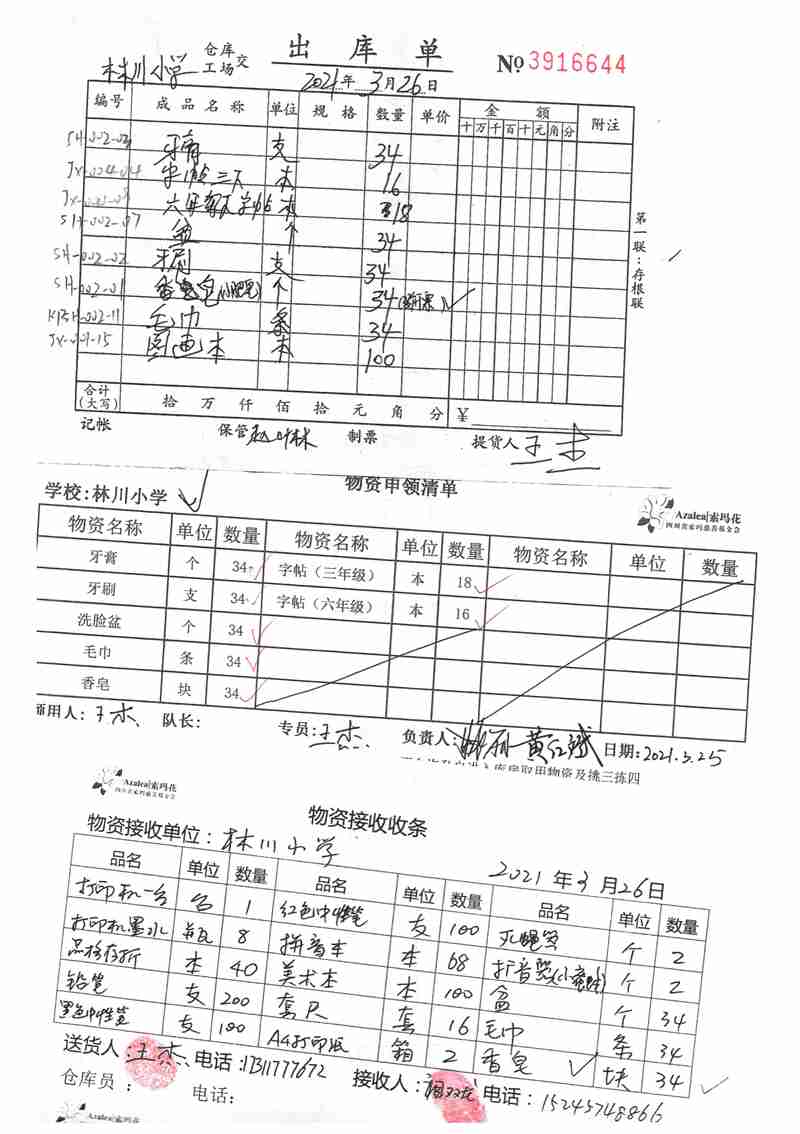 出 库 单
林川小学 仓库 工场 交 No 3916644
2021年 3月26日
编号 成品名称 单位 规格 数量 单价 金额 附注
十 万 千 百 十 元 角 分
SH-002-03 牙膏 支 34
本 16
六年 字帖 本 18
盆 个 34
SH-002-02 牙刷 支 34
SH-002-01 香皂 个 34
毛巾 条 34
图画本 本 100
第一联:存根联
合计(大写) 拾 万 仟 佰 拾 元 角 分 ¥
记帐 保管 制票 提货人 王杰
物资申领清单
学校:林川小学
Azalea|索玛花
物资名称 单位 数量 物资名称 单位 数量 物资名称 单位 数量
牙膏 个 34 字帖(三年级) 本 18
牙刷 支 34 字帖(六年级) 本 16
洗脸盆 个 34
毛巾 条 34
香皂 块 34
用人:王杰 队长: 专员:王杰 负责人: 日期:2021.3.25
Azalea|索玛花
物资接收收条
物资接收单位:林川小学 2021年3月26日
品名 单位 数量 品名 单位 数量 品名 单位 数量
打印机一台 台 1 红色中性笔 支 100 个 2
打印机墨水 瓶 8 拼音本 本 68 扩音器 个 2
本 40 美术本 本 100 盆 个 34
铅笔 支 200 套尺 套 16 毛巾 条 34
黑色中性笔 支 100 A4打印纸 箱 2 香皂 块 34
送货人:王杰 电话:17311777672 接收人: 电话:15245748866
仓库员: 电话:
Azalea|索玛花